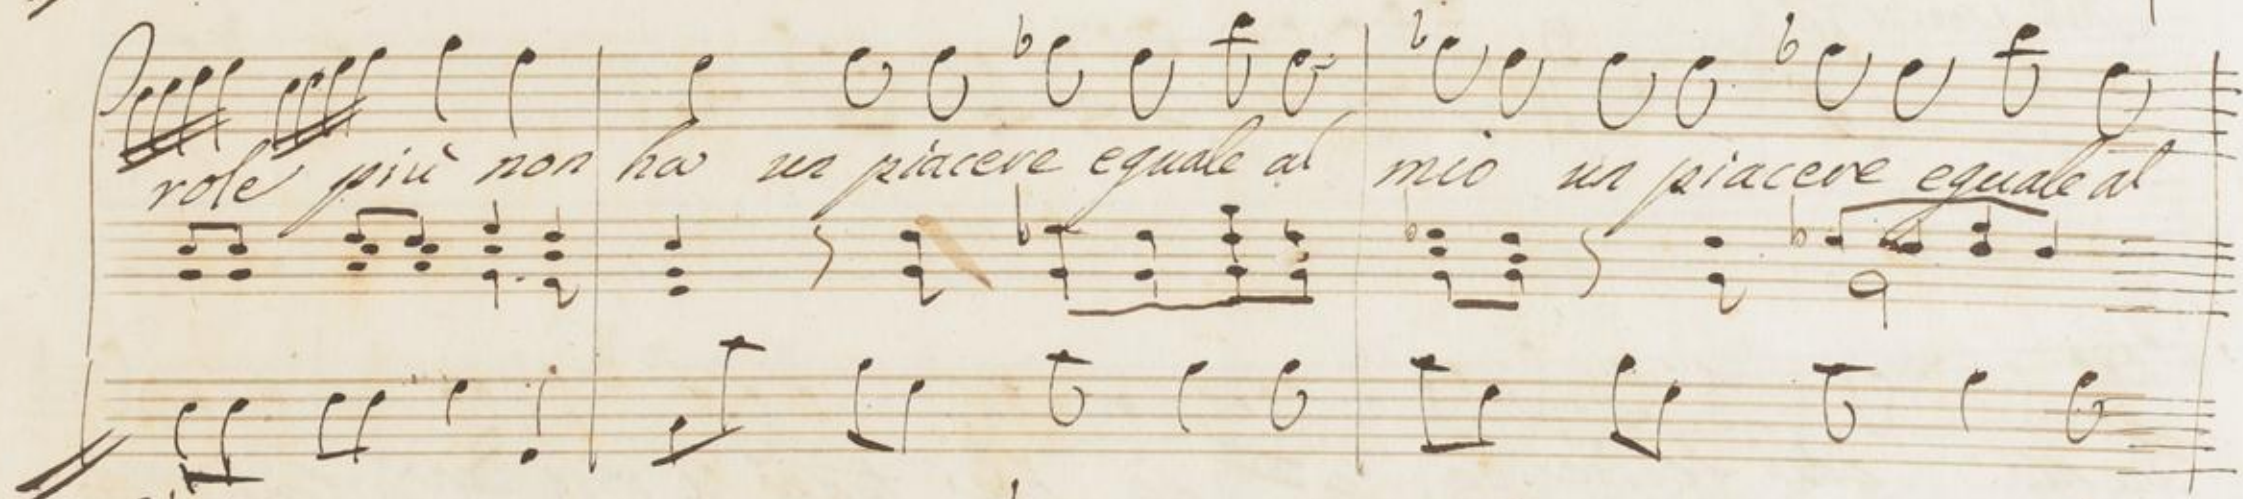 role più non ha un piacere eguale al mio un piacere eguale al